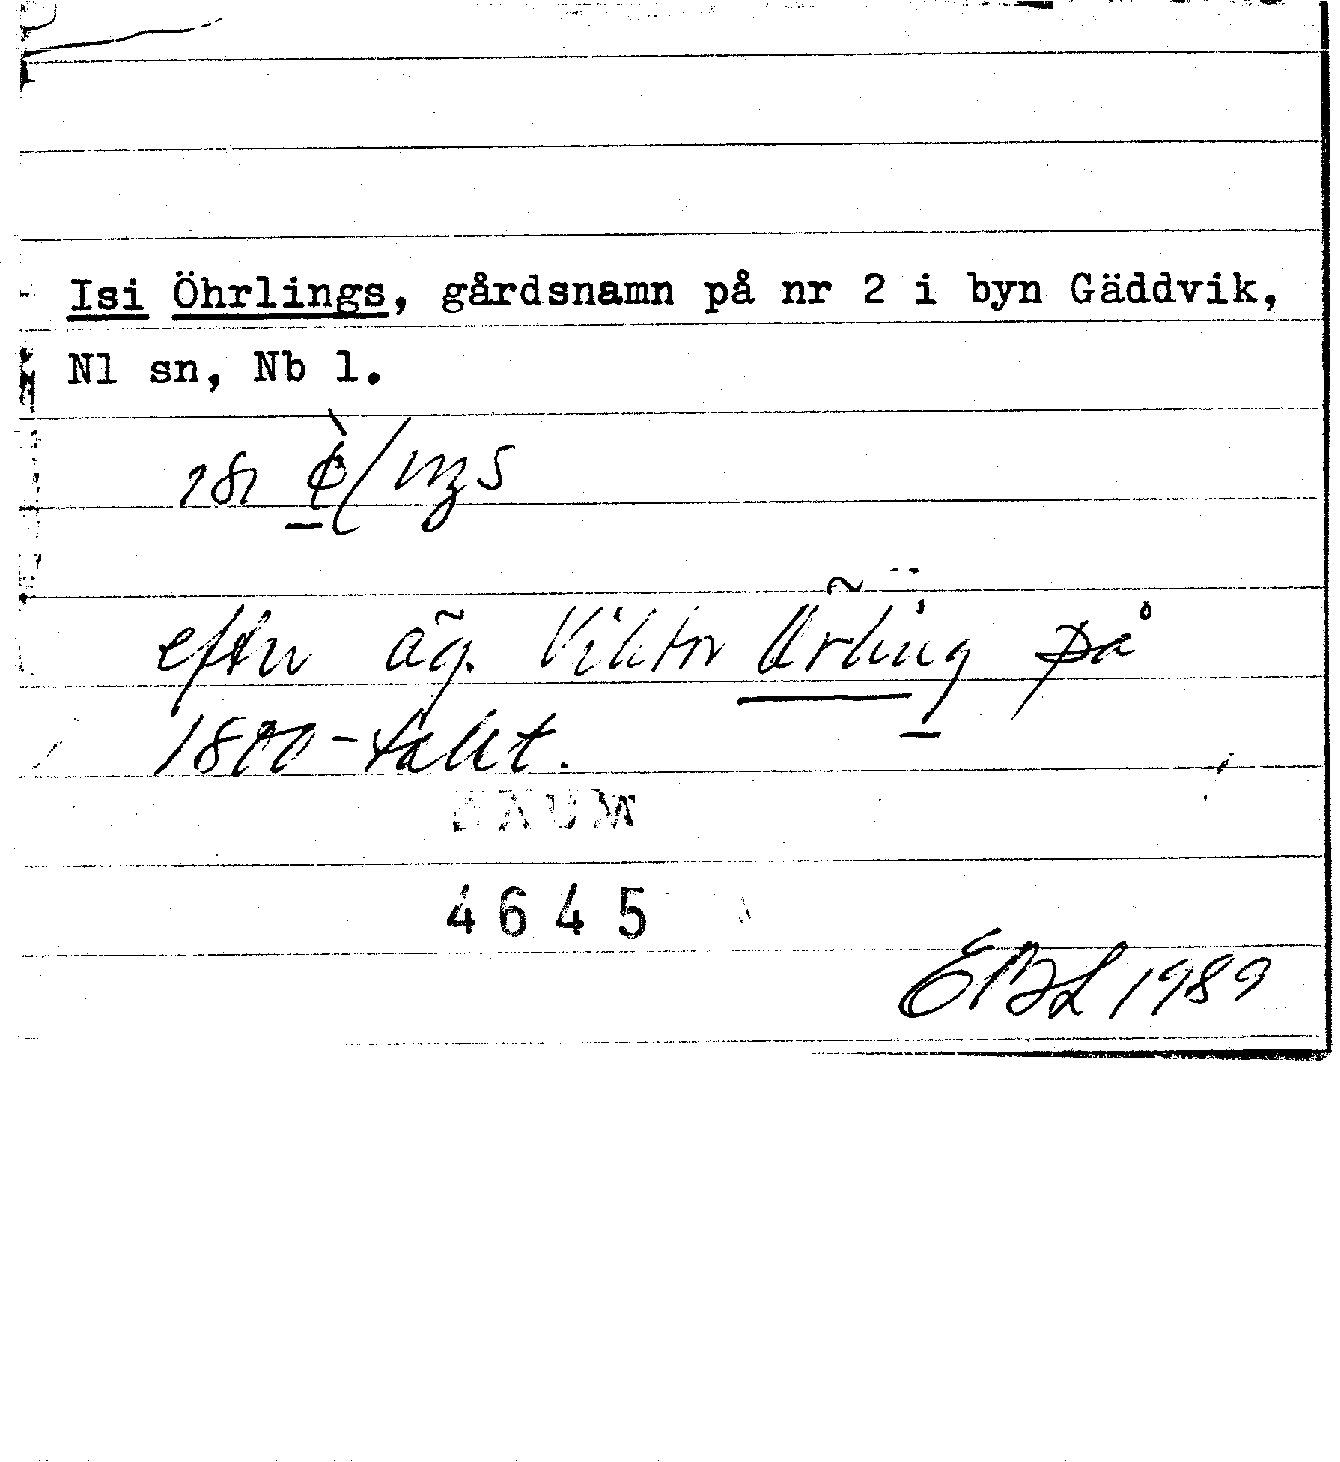 Isi Öhrlings, gårdsnamn på nr 2 i byn Gäddvik,
Nl sn, Nb l.
efter äg. Viktor Örling på
1800-talet.
DAUM
4645
EBL 1989